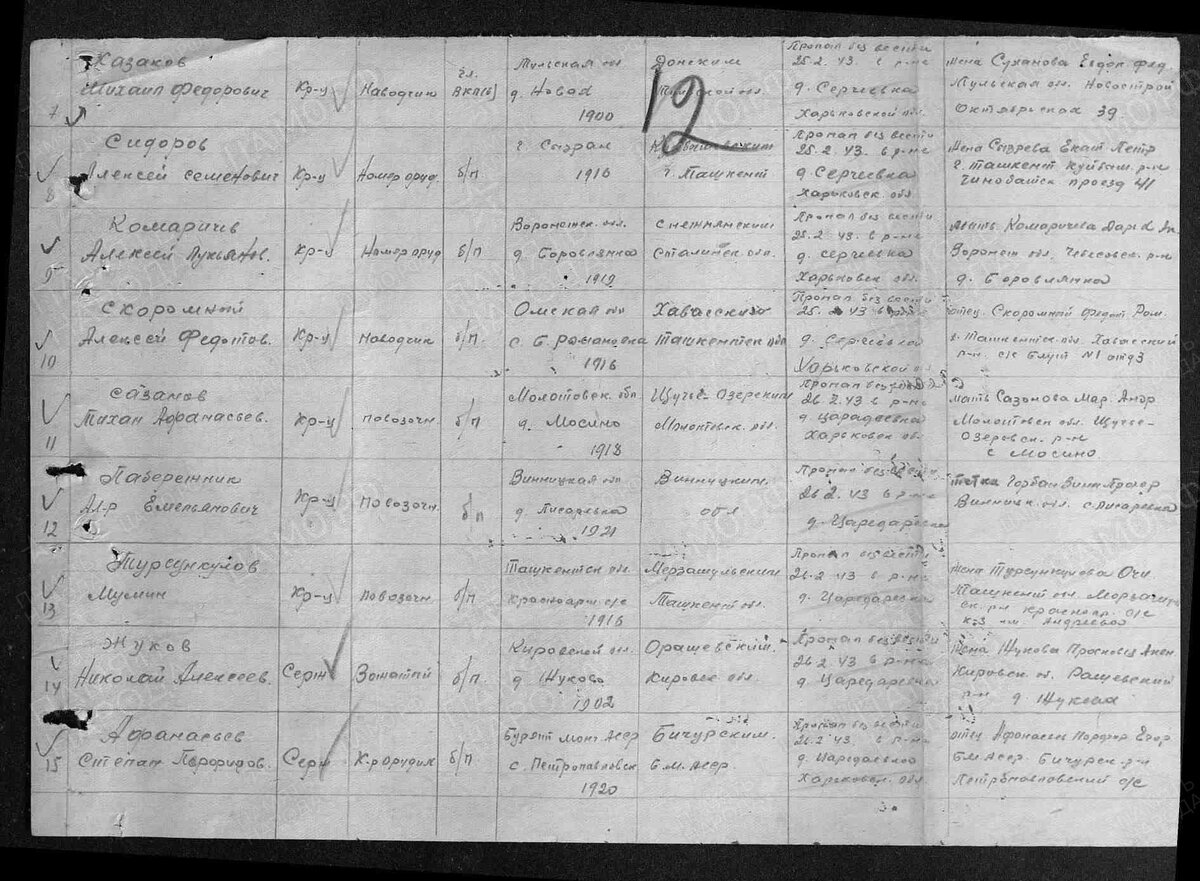 12
Казаков
Михаил Федорович
7
Кр-ц
Наводчик
чл. ВКП(б)
Тульская обл
д. Новая
1900
Донским
Тульской обл.
Пропал без вести
25.2.43. в р-не
д. Сергиевка
Харьковской обл.
жена Суханова Евдок. Фед.
Тульская обл. Новострой
Октябрьская 39
Сидоров
Алексей Семенович
8
Кр-ц
Номер оруд.
б/п
г. Сызран
1916
г. Ташкент
Пропал без вести
25.2.43. в р-не
д. Сергиевка
Харьковск. обл.
жена Екат Петр
г. Ташкент Куйбыш. р-н
проезд 41
Комаричев
Алексей Лукьянов.
9
Кр-ц
Номер оруд
б/п
Воронежск. обл.
д. Боровлянка
1919
Снежнянским
Сталинск. обл.
Пропал без вести
25.2.43. в р-не
д. Сергиевка
Харьковск обл.
мать Комаричева Дарья
Воронеж обл. р-н
д. Боровлянка
Скоромный
Алексей Федотов.
10
Кр-ц
Наводчик
б/п.
Омская обл
с. Б. Романовка
1916
Хавасский
Ташкентск обл
Пропал без вести
25. 43 в р-не
д. Сергиевка
Харьковской обл
отец Скоромный Федот Ром.
Ташкентск. обл. Хавасский
р-н. с/с Баут №1 отд 3
Сазанов
Михаил Афанасьев.
11
Кр-ц
Повозочн
б/п
Молотовск. обл
д. Мосино
1913
Щучье-Озерским
Молотовск. обл.
Пропал без вести
26 2.43 в р-не
д. Царедаревка
Харьковск об.
мать Сазонова Мар. Андр
Молотовск обл. Щучье-
Озеровск. р-н
с Мосино
Паберенник
Ал-р Емельянович
12
Кр-ц
Повозочн.
б/п
Винницкая обл
д. Писаревка
1921
Винницким.
обл
Пропал без вести
26 2.43 в р-не
д. Царедаревка
тетка Горбан
Винницк. обл. с. Писаревка
Турсункулов
Мумин
13
Кр-ц
Повозочн
б/п
Ташкентск обл.
Красноарм. с/с
1916
Мерзашульским
Ташкент обл.
Пропал без вести
26.2.43 в р-не
д. Царедаревка
жена Турсункулова Очи.
Ташкентск обл.
ск. р-н Красноар. с/с
к-з им Андреева
Жуков
Николай Алексеев.
14
Серж
б/п.
Кировской обл.
д. Жуково
1902
Орашевский.
Кировск обл.
Пропал без вести
26 2.43 в р-не
д. Царедаревка
жена Жукова
Кировск об. Рашевский
р-н д. Жукова
Афанасьев
Степан Порфиров.
15
Серж
К-р орудия
б/п
Бурят Монг Асср
с. Петропавловск
1920
Бичурским.
Б.М. Асср.
Пропал без вести
26.2.43. в р-не
д. Царедаревка
Харьковск. обл
отец Афанасьев Порфир Егор.
Б.М. Асср. Бичурск. р-н
Петропавловский с/с